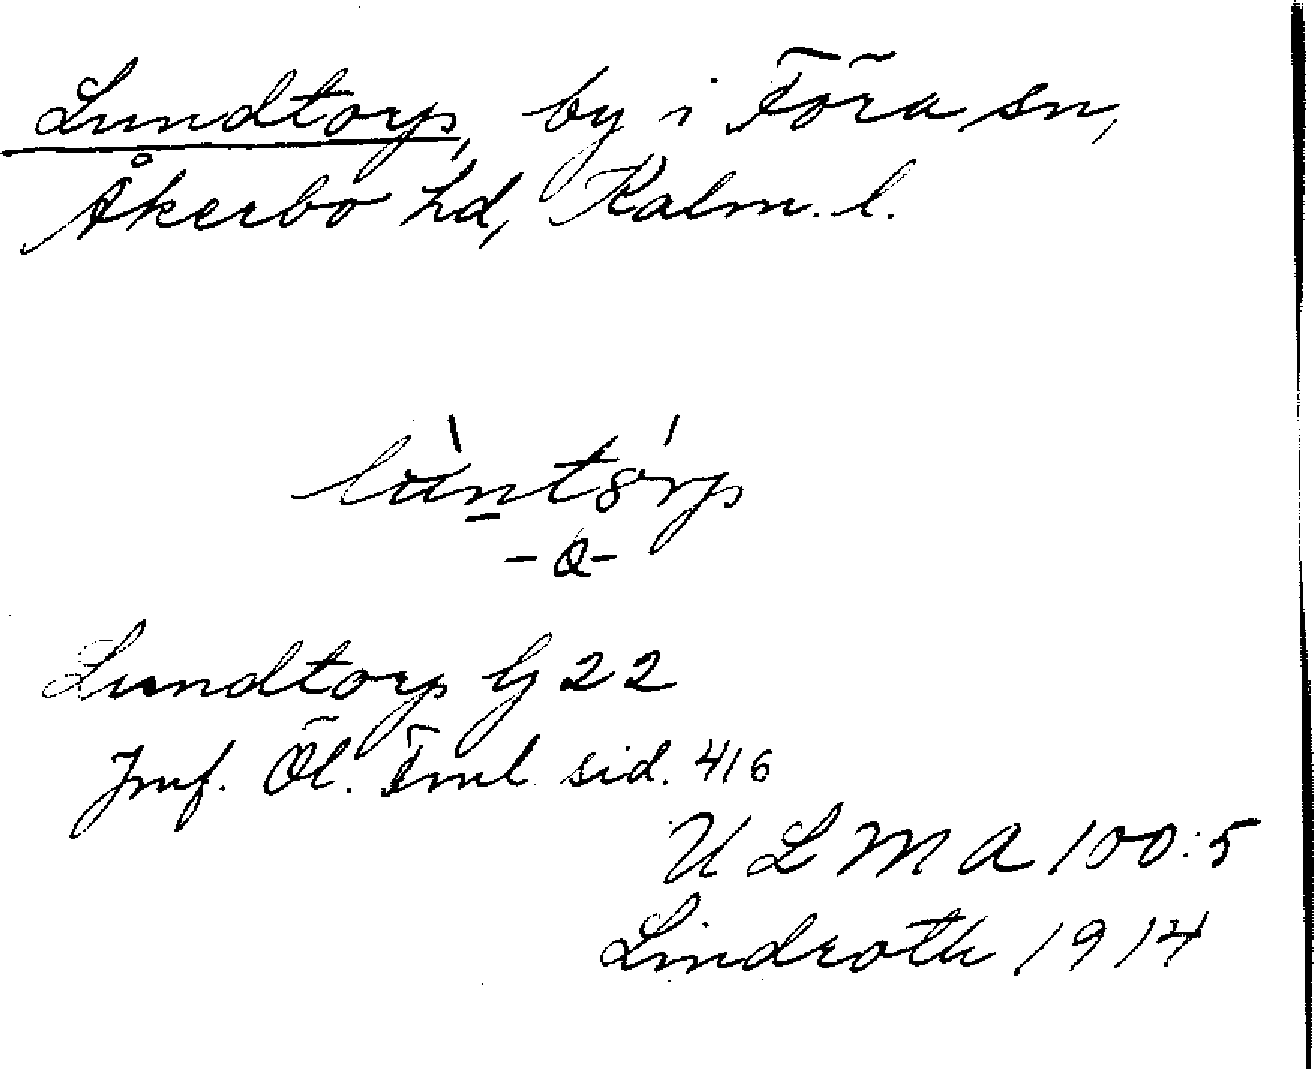 Lundtorp, by i Föra sn,
Åkerbo hd, Kalm. l.
lùntórp
-a-
Lundtorp Gj 22
Jmf. Öl. Fml. sid. 416
ULMA 100:5
Lindroth 1914